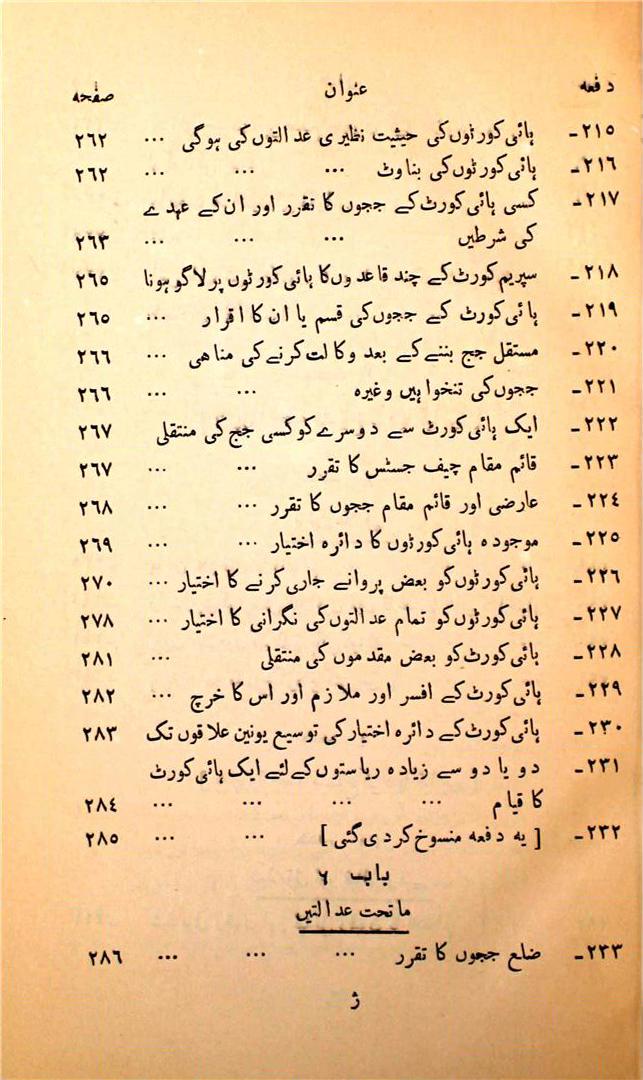 دفعہ عنوان صفحہ
۲۱۵۔ ہائی کورٹوں کی حیثیت نظیری عدالتوں کی ہوگی ... ۲٦۲
۲۱٦۔ ہائی کورٹوں کی بناوٹ ... ... ... ۲٦۲
۲۱۷۔ کسی ہائی کورٹ کے ججوں کا تقرر اور ان کے عہدے
کی شرطیں ... ... ... ۲٦۳
۲۱۸۔ سپریم کورٹ کے چند قاعدوں کا ہائی کورٹوں پر لاگو ہونا ۲٦۵
۲۱۹۔ ہائی کورٹ کے ججوں کی قسم یا ان کا اقرار ... ۲٦۵
۲۲۰۔ مستقل جج بننے کے بعد وکالت کرنے کی مناھی ... ۲٦٦
۲۲۱۔ ججوں کی تنخواہیں وغیرہ ... ... ۲٦٦
۲۲۲۔ ایک ہائی کورٹ سے دوسرے کو کسی جج کی منتقلی ۲٦۷
۲۲۳۔ قائم مقام چیف جسٹس کا تقرر ... ... ۲٦۷
۲۲٤۔ عارضی اور قائم مقام ججوں کا تقرر ... ... ۲٦۸
۲۲۵۔ موجودہ ہائی کورٹوں کا دائرہ اختیار ... ... ۲٦۹
۲۲٦۔ ہائی کورٹوں کو بعض پروانے جاری کرنے کا اختیار ... ۲۷۰
۲۲۷۔ ہائی کورٹوں کو تمام عدالتوں کی نگرانی کا اختیار ... ۲۷۸
۲۲۸۔ ہائی کورٹ کو بعض مقدموں کی منتقلی ... ۲۸۱
۲۲۹۔ ہائی کورٹ کے افسر اور ملازم اور اس کا خرچ ... ۲۸۲
۲۳۰۔ ہائی کورٹ کے دائرہ اختیار کی توسیع یونین علاقوں تک ۲۸۳
۲۳۱۔ دو یا دو سے زیادہ ریاستوں کے لئے ایک ہائی کورٹ
کا قیام ... ... ... ... ۲۸٤
۲۳۲۔ [ یہ دفعہ منسوخ کر دی گئی ] ... ... ۲۸۵
باب ٦
ماتحت عدالتیں
۲۳۳۔ ضلع ججوں کا تقرر ... ... ... ۲۸٦
ژ